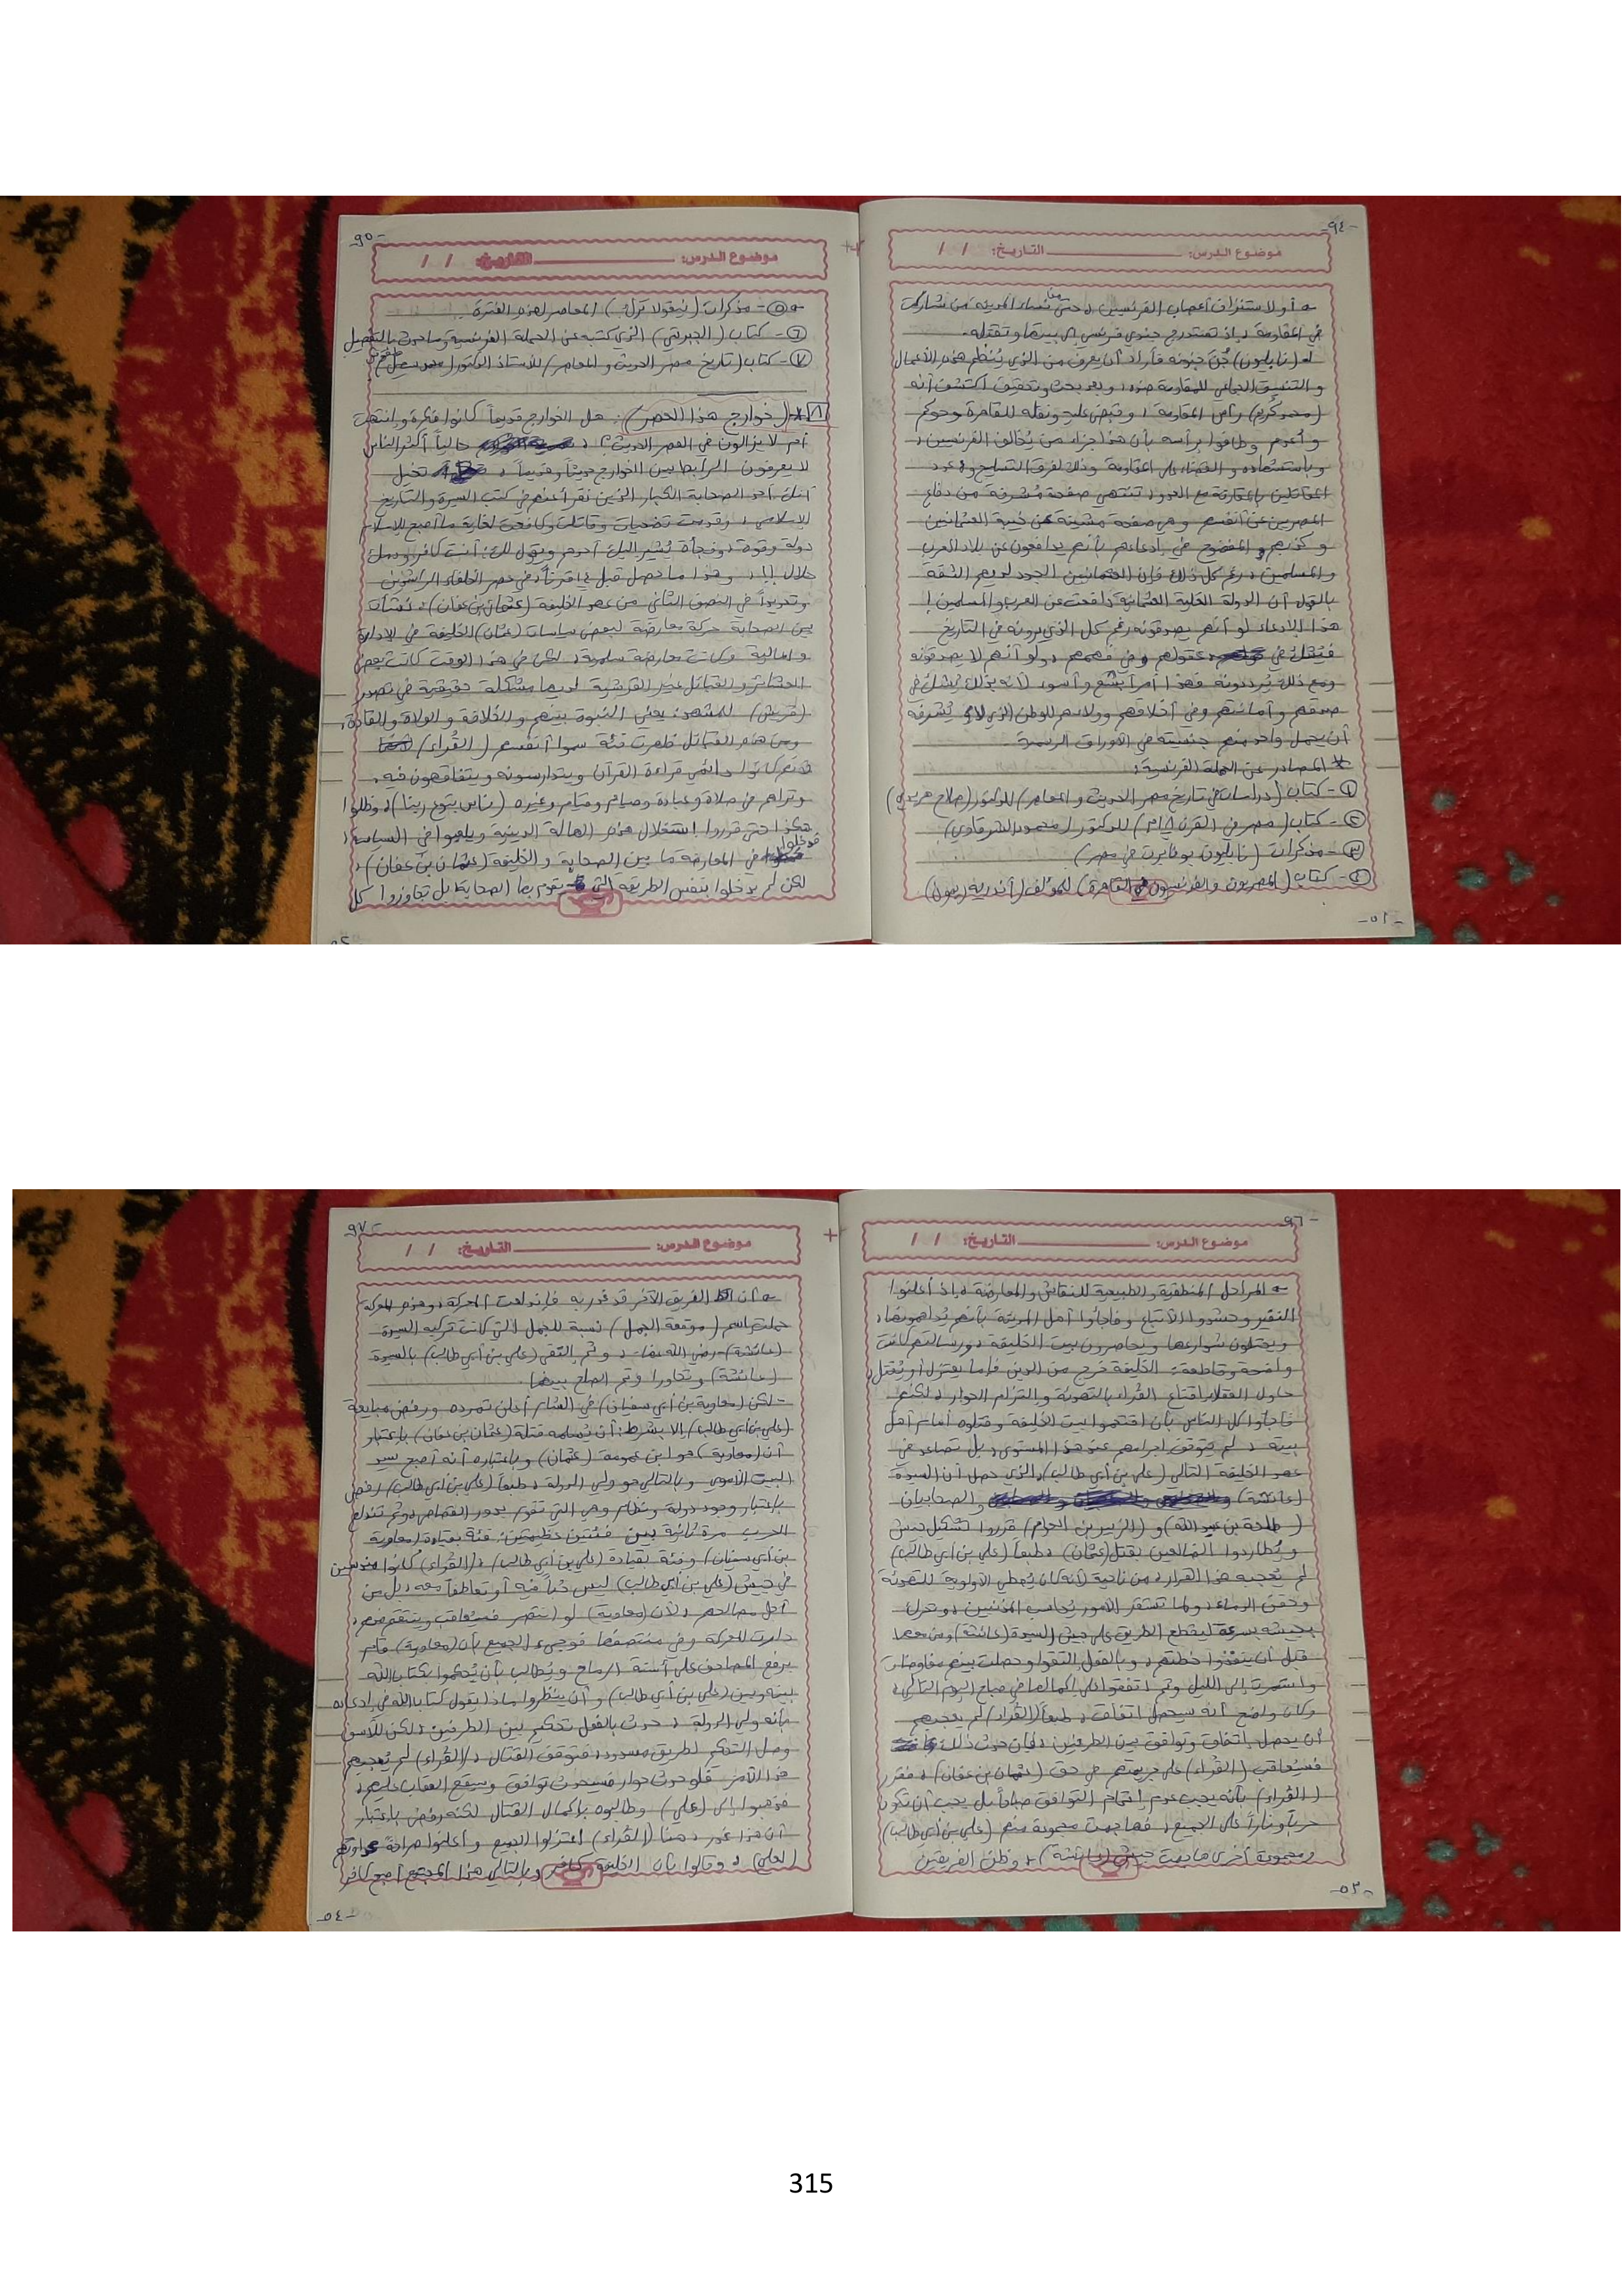 -٩٤-
موضوع الدرس: التاريخ: / /
أو لاستنزاف أعصاب الفرنسيين، حتى نساء المدينة من شاركت
في المقاومة، إذ تستدرج جندي فرنسي لبيتها وتقتله.
(نابليون) جُنّ جنونه فأراد أن يعرف من الذي يُنظم هذه الأعمال
والتنسيق الجماعي للمقاومة ضده، وبعد بحث وتحقيق اكتشف أنه
(محمد كريم) رأس المقاومة، وقبض عليه ونقله للقاهرة وحوكم
وأُعدم وطافوا برأسه بأن هذا جزاء من يُخالف الفرنسيين،
وباستشهاده والقضاء على المقاومة وذلك لفرق التسليح وعدد
المقاتلين بالمقارنة مع العدو، تنتهي صفحة مُشرفة من دفاع
المصريين عن أنفسهم وهي صفحة مشينة عن خيبة العثمانيين
وكذبهم المفضوح في ادعاءهم بأنهم يدافعون عن بلاد العرب
والمسلمين، رغم كل ذلك فإن العثمانيين الجدد لديهم الثقة
بالقول أن الدولة العلية العثمانية دافعت عن العرب والمسلمين!
هذا الإدعاء لو أنهم يصدقونه رغم كل الذي يرونه في التاريخ
فيشكك في عقولهم وفي فهمهم، ولو أنهم لا يصدقونه
ومع ذلك يُرددونه فهذا أمراً أبشع وأسوء لأنه بذلك يُشكك في
صدقهم وأمانتهم وفي أخلاقهم وولائهم للوطن الذي لا يُشرفه
أن يحمل واحد منهم جنسيته في الأوراق الرسمية.
* المصادر عن الحملة الفرنسية:
١- كتاب (دراسات في تاريخ مصر الحديث والمعاصر) للدكتور (صلاح هريدي)
٢- كتاب (مصر في القرن ١٨م) للدكتور (محمود الشرقاوي)
٣- مذكرات (نابليون بونابرت في مصر)
٤- كتاب (المصريون والفرنسيون في القاهرة) للمؤلف (أندريه ريمون)
-٥١-
-٩٥-
موضوع الدرس: التاريخ: / /
٥- مذكرات (نيقولا ترك) المعاصر لهذه الفترة.
٦- كتاب (الجبرتي) الذي كتبه عن الحملة الفرنسية وما حدث بالتفصيل
٧- كتاب (تاريخ مصر الحديث والمعاصر) للأستاذ الدكتور
٨* (خوارج هذا العصر): هل الخوارج قديماً كانوا فكرة وانتهت
أم لا يزالون في العصر الحديث؟! حالياً أكثر الناس
لا يعرفون الرابط بين الخوارج حديثاً وقديماً، تخيل
أنك أحد الصحابة الكبار الذين نقرأ عنهم في كتب السيرة والتاريخ
الإسلامي، وقدمت تضحيات وقاتلت وكافحت لغاية ما أصبح للإسلام
دولة وقوة، وفجأة يُشير إليك أحدهم ويقول لك: أنت كافر ودمك
حلال!!، وهذا ما حصل قبل ١٤ قرناً، في عصر الخلفاء الراشدين
وتحديداً في النصف الثاني من عهد الخليفة (عثمان بن عفان)، نشأت
بين الصحابة حركة معارضة لبعض سياسات (عثمان) الخليفة في الإدارة
والمالية وكانت معارضة سلمية، لكن في هذا الوقت كانت بعض
العشائر والقبائل غير القرشية لديها مشكلة حقيقية في تصدر
(قريش) للمشهد، يعني النبوة بينهم والخلافة والولاة والقادة،
ومن هذه القبائل ظهرت فئة سموا أنفسهم (القُراء)
فهم كانوا دائمي قراءة القرآن ويتدارسونه ويتفاقهون فيه،
وتراهم في صلاة وعبادة وصيام وقيام وغيره (ناس بتوع ربنا)، وظلوا
هكذا حتى قرروا استغلال هذه الهالة الدينية ويلعبوا في السياسة،
فدخلوا في المعارضة ما بين الصحابة والخليفة (عثمان بن عفان)،
لكن لم يدخلوا بنفس الطريقة التي يقوم بها الصحابة، بل تجاوزوا كل
٥٢
-٩٦-
موضوع الدرس: التاريخ: / /
المراحل المنطقية والطبيعية للنقاش والمعارضة، إذ أعلنوا
النفير وحشدوا الأتباع وفاجأوا أهل المدينة بأنهم يُداهمونها،
ويحتلون شوارعها ويحاصرون بيت الخليفة، ورسالتهم كانت
واضحة وقاطعة: الخليفة خرج من الدين فإما يعتزل أو يُقتل،
حاول العقلاء إقناع القُراء بالتهدئة والتزام الحوار، لكنهم
فاجأوا كل الناس بأن اقتحموا بيت الخليفة وقتلوه أمام أهل
بيته، لم يتوقف إجرامهم عند هذا المستوى، بل تصاعد في
عهد الخليفة التالي (علي بن أبي طالب)، الذي حصل أن السيدة
(عائشة) والصحابيان
(طلحة بن عبيد الله) و(الزبير بن العوام) قرروا تشكيل جيش
ويُطاردوا الضالعين بقتل (عثمان)، طبعاً (علي بن أبي طالب)
لم يُعجبه هذا القرار، من ناحية لأنه كان يُعطي الأولوية للتهدئة
وحقن الدماء، ولما تستقر الأمور يُحاسب المذنبين، وتحرك
بجيشه بسرعة ليقطع الطريق على جيش السيدة (عائشة) ومن معها
قبل أن ينفذوا خطتهم، وبالفعل التقوا وحصلت بينهم مفاوضات
واستمرت إلى الليل وتم اتفقوا على إكمالها في صباح اليوم التالي،
وكان واضح أنه سيحصل اتفاق، طبعاً (القُراء) لم يعجبهم
أن يحصل اتفاق وتوافق بين الطرفين، فإن حدث ذلك
فسيُعاقب (القُراء) على جريمتهم في حق (عثمان بن عفان)، فقرر
(القُراء) بأنه يجب عدم إتمام التوافق صباحاً بل يجب أن تكون
حرباً وناراً على الجميع، فهاجمت مجموعة منهم (علي بن أبي طالب)
ومجموعة أخرى هاجمت جيش (عائشة)، وظن الفريقين
-٥٣-
-٩٧-
موضوع الدرس: التاريخ: / /
أن الفريق الآخر قد غدر به فاندلعت المعركة، وهذه المعركة
حملت اسم (موقعة الجمل) نسبة للجمل التي كانت تركبه السيدة
(عائشة) -رضي الله عنها-، وثم التقى (علي بن أبي طالب) بالسيدة
(عائشة) وتحاورا وتم الصلح بينهما.
- لكن (معاوية بن أبي سفيان) في الشام أعلن تمرده ورفض مبايعة
(علي بن أبي طالب) إلا بشرط: أن يُسلمه قتلة (عثمان بن عفان) باعتبار
أن (معاوية) هو ابن عمومة (عثمان) وباعتباره أنه أصبح سيد
البيت الأموي وبالتالي هو ولي الدولة، طبعاً (علي بن أبي طالب) رفض
باعتبار وجود دولة ونظام وهي التي تقوم بدور القصاص، وثم تندلع
الحرب مرة ثانية بين فئتين عظيمتين: فئة بقيادة (معاوية
بن أبي سفيان) وفئة بقيادة (علي بن أبي طالب)، (القُراء) كانوا مندسين
في جيش (علي بن أبي طالب) ليس حباً فيه أو تعاطفاً معه، بل من
أجل مصالحهم، لأن (معاوية) لو انتصر فسيُعاقب وينتقم منهم،
دارت المعركة وفي منتصفها فوجيء الجميع بأن (معاوية) قام
برفع المصاحف على أسنة الرماح ويُطالب بأن يُحكموا كتاب الله
بينه وبين (علي بن أبي طالب) وأن ينظروا ماذا يقول كتاب الله في ادعائه
بأنه ولي الدولة، حدث بالفعل تحكيم بين الطرفين، لكن للأسف
وصل التحكيم لطريق مسدود، فتوقف القتال، (القُراء) لم يُعجبهم
هذا الأمر فلو حدث حوار فسيحدث توافق وسيقع العقاب عليهم،
فذهبوا إلى (علي) وطالبوه بإكمال القتال لكنه رفض باعتبار
أن هذا غدر، هنا (القُراء) اعتزلوا الجميع وأعلنوا صراحة عداوتهم
(لعلي)، وقالوا بأن الخليفة كافر وبالتالي هذا المجتمع أصبح كافر
-٥٤-
315